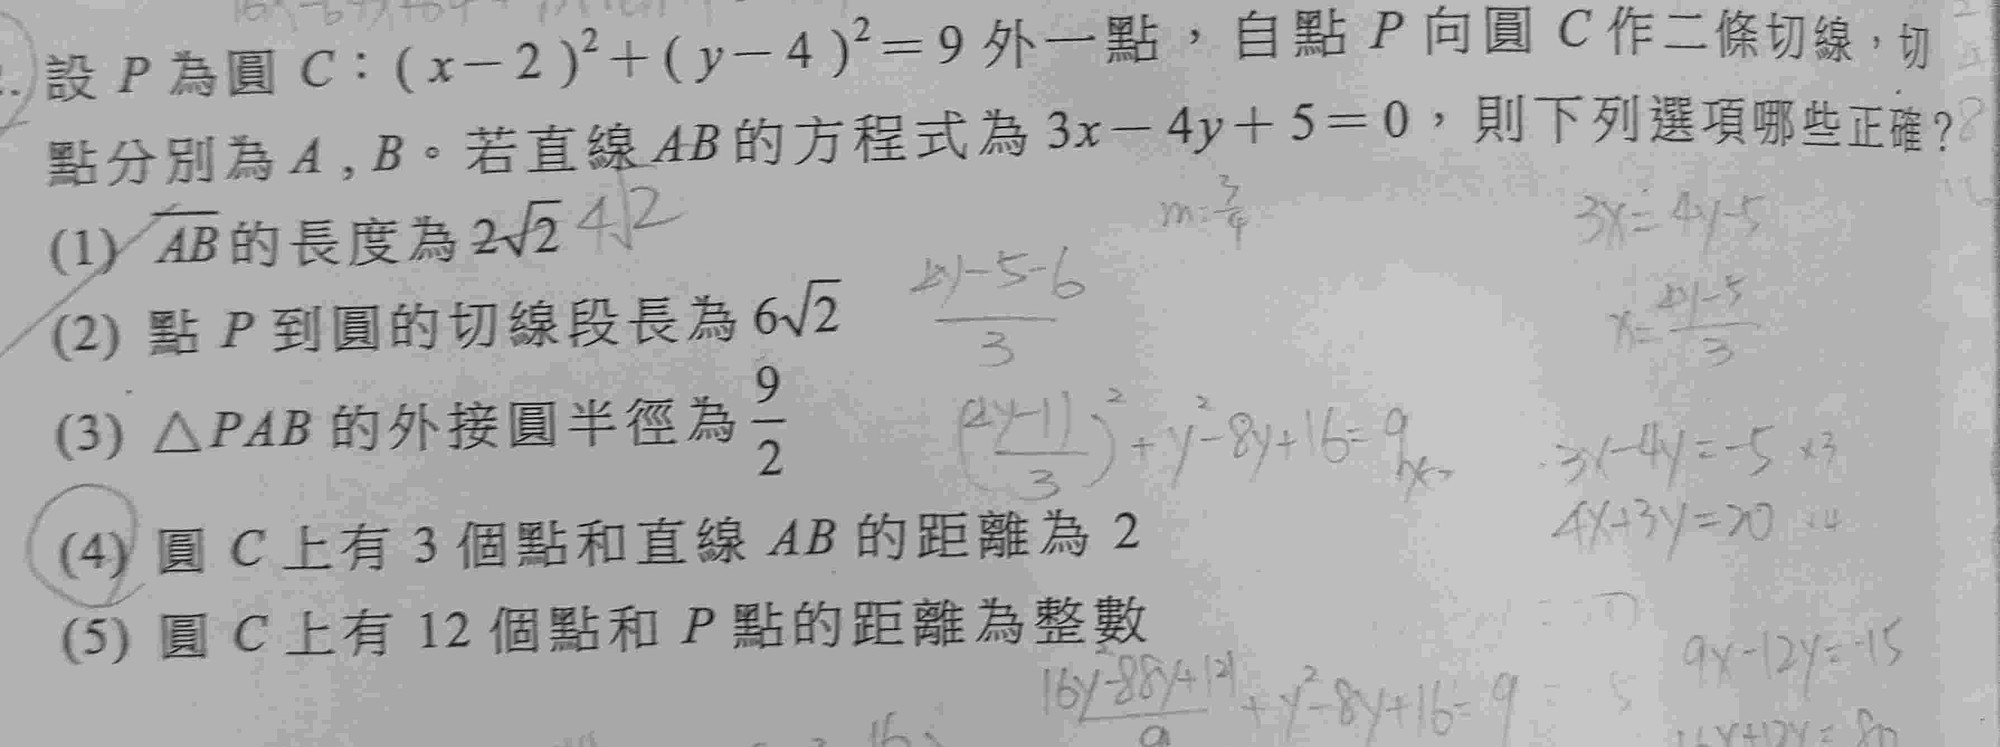 設 P 為圓 C：(x－2)²＋(y－4)²＝9 外一點，自點 P 向圓 C 作二條切線，切
點分別為 A , B。若直線 AB 的方程式為 3x－4y＋5＝0，則下列選項哪些正確？
(1) AB 的長度為 2√2 4√2
m=3/4
3x=4y-5
(2) 點 P 到圓的切線段長為 6√2
4y-5-6
3
x=4y-5
3
(3) △PAB 的外接圓半徑為 9/2
(4y-11/3)²+y²-8y+16=9
3x-4y=-5 ×3
4x+3y=20
(4) 圓 C 上有 3 個點和直線 AB 的距離為 2
(5) 圓 C 上有 12 個點和 P 點的距離為整數
9x-12y=-15
16y²-88y+121/9+y²-8y+16=9